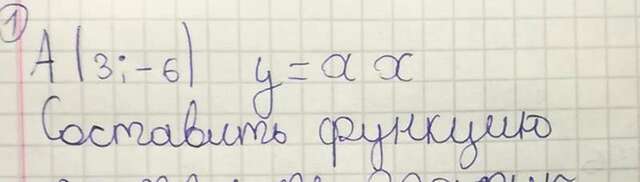 1
A(3;-6) y=ax
Составить функцию